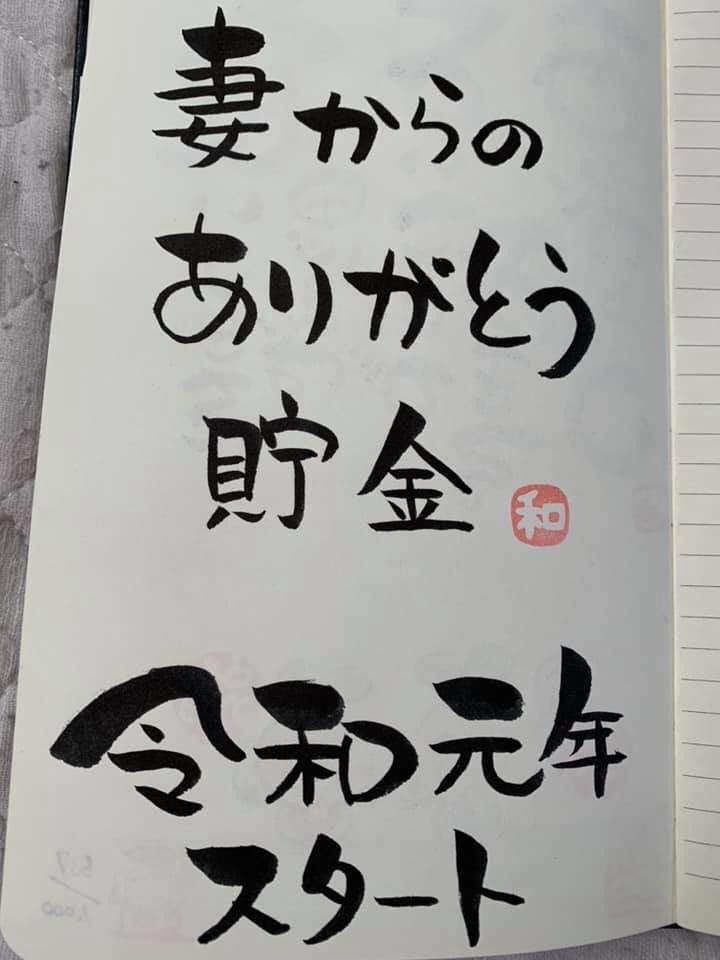 妻からの
ありがとう
貯金
和
令和元年
スタート